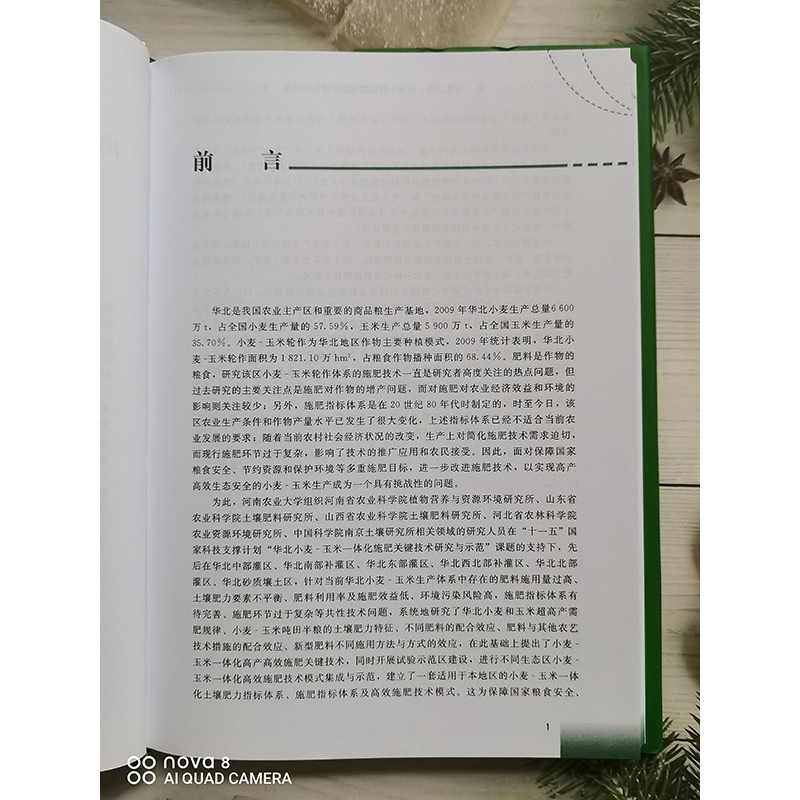 前 言
华北是我国农业主产区和重要的商品粮生产基地，2009 年华北小麦生产总量6 600
万 t，占全国小麦生产量的 57.59%，玉米生产总量 5 900 万 t，占全国玉米生产量的
35.70%。小麦-玉米轮作为华北地区作物主要种植模式，2009 年统计表明，华北小
麦-玉米轮作面积为 1 821.10 万 hm²，占粮食作物播种面积的 68.44%。肥料是作物的
粮食，研究该区小麦-玉米轮作体系的施肥技术一直是研究者高度关注的热点问题，但
过去研究的主要关注点是施肥对作物的增产问题，而对施肥对农业经济效益和环境的
影响则关注较少；另外，施肥指标体系是在 20 世纪 80 年代时制定的，时至今日，该
区农业生产条件和作物产量水平已发生了很大变化，上述指标体系已经不适合当前农
业发展的要求；随着当前农村社会经济状况的改变，生产上对简化施肥技术需求迫切，
而现行施肥环节过于复杂，影响了技术的推广应用和农民接受。因此，面对保障国家
粮食安全、节约资源和保护环境等多重施肥目标，进一步改进施肥技术，以实现高产
高效生态安全的小麦-玉米生产成为一个具有挑战性的问题。
为此，河南农业大学组织河南省农业科学院植物营养与资源环境研究所、山东省
农业科学院土壤肥料研究所、山西省农业科学院土壤肥料研究所、河北省农林科学院
农业资源环境研究所、中国科学院南京土壤研究所相关领域的研究人员在“十一五”国
家科技支撑计划“华北小麦-玉米一体化施肥关键技术研究与示范”课题的支持下，先
后在华北中部灌区、华北南部补灌区、华北东部灌区、华北西北部补灌区、华北北部
灌区、华北砂质壤土区，针对当前华北小麦-玉米生产体系中存在的肥料施用量过高、
土壤肥力要素不平衡、肥料利用率及施肥效益低、环境污染风险高，施肥指标体系有
待完善、施肥环节过于复杂等共性技术问题，系统地研究了华北小麦和玉米超高产需
肥规律、小麦-玉米吨田半粮的土壤肥力特征、不同肥料的配合效应、肥料与其他农艺
技术措施的配合效应、新型肥料不同施用方法与方式的效应，在此基础上提出了小麦-
玉米一体化高产高效施肥关键技术，同时开展试验示范区建设，进行不同生态区小麦-
玉米一体化高效施肥技术模式集成与示范，建立了一套适用于本地区的小麦-玉米一体
化土壤肥力指标体系、施肥指标体系及高效施肥技术模式。这为保障国家粮食安全、
1
nova 8
AI QUAD CAMERA